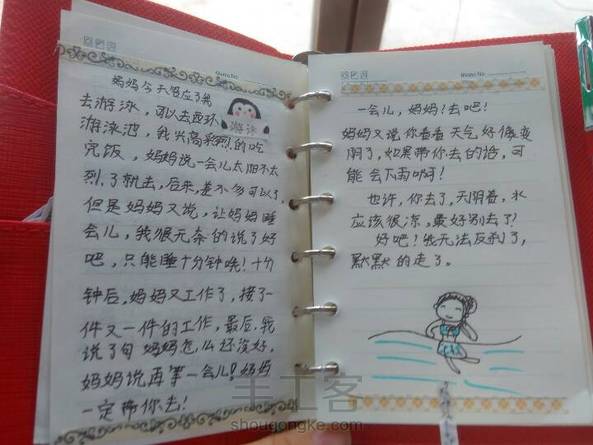 妈妈今天答应了我
去游泳，可以去西环
游泳
游泳池，我兴高彩烈的吃
完饭，妈妈说一会儿太阳不太
烈了就去，后来，差不多可以了
但是妈妈又说，让妈妈睡
会儿，我很无奈的说了好
吧，只能睡十分钟哦！十分
钟后，妈妈又工作了，接了一
件又一件的工作，最后，我
说了句 妈妈怎么还没好，
妈妈说再等一会儿！妈妈
一定带你去！
一会儿，妈妈！去吧！
妈妈又说你看看天气好像变
阴了，如果带你去的话，可
能会下雨啊！
也许，你去了，天阴着，水
应该很凉，最好别去了！
好吧！我无法反驳了，
默默的走了。
手工客
shougongke.com